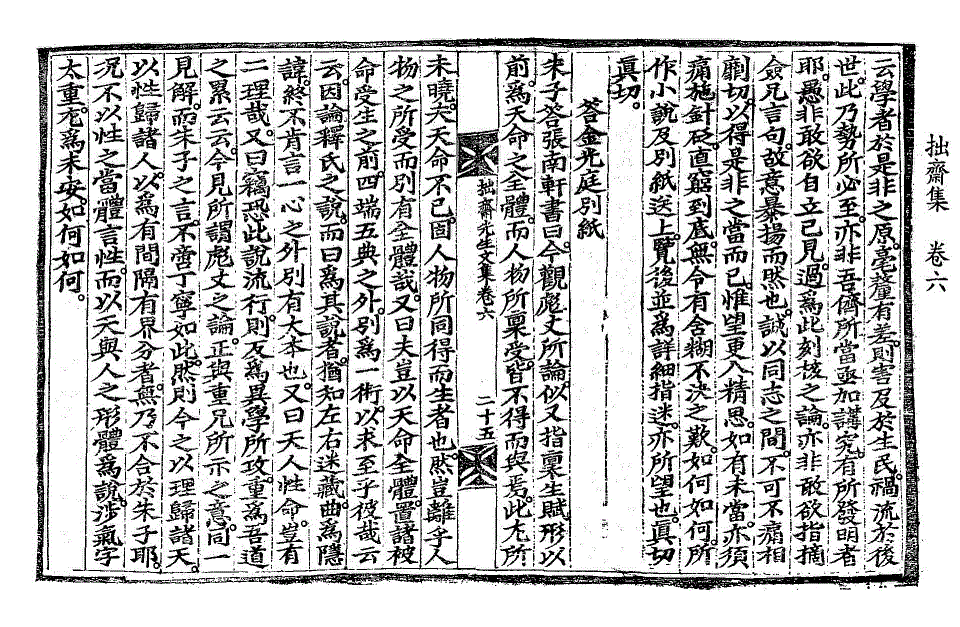 拙齋集　卷六
云學者於是非之原毫釐有差則害及於生民禍流於後
世此乃勢所必至亦非吾儕所當亟加講究有所發明者
耶愚非敢欲自立己見過爲此刻核之論亦非敢欲指摘
僉兄言句故意暴揚而然也誠以同志之間不可不痛相
劘切以得是非之當而已惟望更入精思如有未當亦須
痛施針砭直窮到底無令有含糊不決之歎如何如何所
作小說及別紙送上覽後並爲詳細指迷亦所望也眞切
眞切
答金光庭別紙
朱子答張南軒書曰今觀彪丈所論似又指稟生賦形以
前爲天命之全體而人物所稟受皆不得而與焉此尤所
拙齋先生文集卷六　二十五
未曉夫天命不已固人物所同得而生者也然豈離乎人
物之所受而別有全體哉又曰夫豈以天命全體置諸被
命受生之前四端五典之外別爲一術以求至乎彼哉云
云因論釋氏之說而曰爲其說者猶知左右迷藏曲爲隱
諱終不肯言一心之外別有大本也又曰天人性命豈有
二理哉又曰竊恐此說流行則反爲異學所攻重爲吾道
之累云云今見所謂彪丈之論正與重兄所示之意同一
見解而朱子之言不啻丁寧如此然則今之以理歸諸天
以性歸諸人以爲有間隔有界分者無乃不合於朱子耶
況不以性之當體言性而以天與人之形體爲說涉氣字
太重尤爲未安如何如何